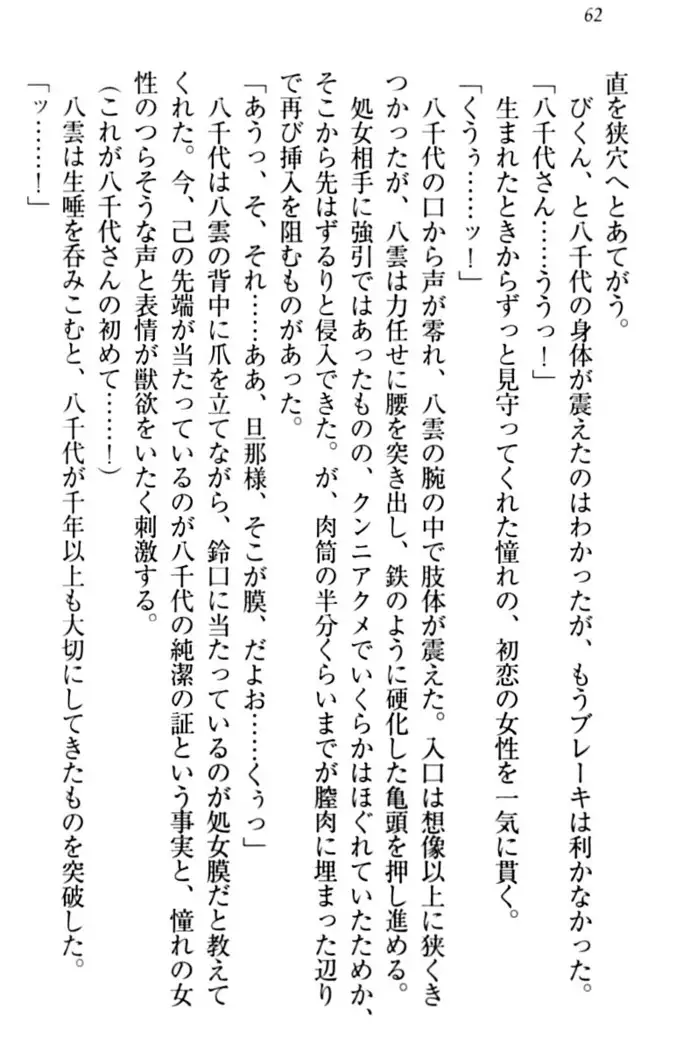 62
直を狭穴へとあてがう。
びくん、と八千代の身体が震えたのはわかったが、もうブレーキは利かなかった。
「八千代さん……ううっ！」
生まれたときからずっと見守ってくれた憧れの、初恋の女性を一気に貫く。
「くうぅ……ッ！」
八千代の口から声が零れ、八雲の腕の中で肢体が震えた。入口は想像以上に狭くき
つかったが、八雲は力任せに腰を突き出し、鉄のように硬化した亀頭を押し進める。
処女相手に強引ではあったものの、クンニアクメでいくらかはほぐれていたためか、
そこから先はずるりと侵入できた。が、肉筒の半分くらいまでが膣肉に埋まった辺り
で再び挿入を阻むものがあった。
「あうっ、そ、それ……ああ、旦那様、そこが膜、だよお……くぅっ」
八千代は八雲の背中に爪を立てながら、鈴口に当たっているのが処女膜だと教えて
くれた。今、己の先端が当たっているのが八千代の純潔の証という事実と、憧れの女
性のつらそうな声と表情が獣欲をいたく刺激する。
（これが八千代さんの初めて……！）
八雲は生唾を呑みこむと、八千代が千年以上も大切にしてきたものを突破した。
「ッ……！」